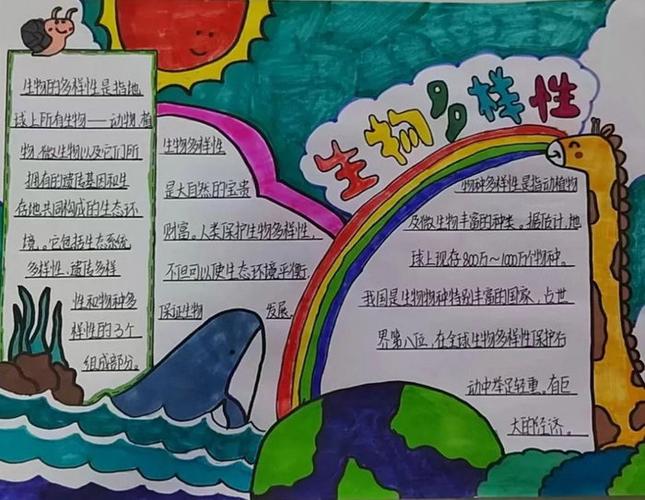 生物多样性
生物的多样性是指地
球上所有生物——动物、植
物、微生物以及它们所
拥有的遗传基因和生
存地共同构成的生态环
境。它包括生态系统
多样性，遗传多样
性和物种多
样性的3个
组成部分。
生物多样性
是大自然的宝贵
财富。人类保护生物多样性，
不但可以使生态环境平衡
保证生物 发展.
物种多样性是指动植物
及微生物丰富的种类。据估计，地
球上现存800万~1000万个物种。
我国是生物物种特别丰富的国家，占世
界第八位，在全球生物多样性保护行
动中举足轻重。有巨
大的经济。